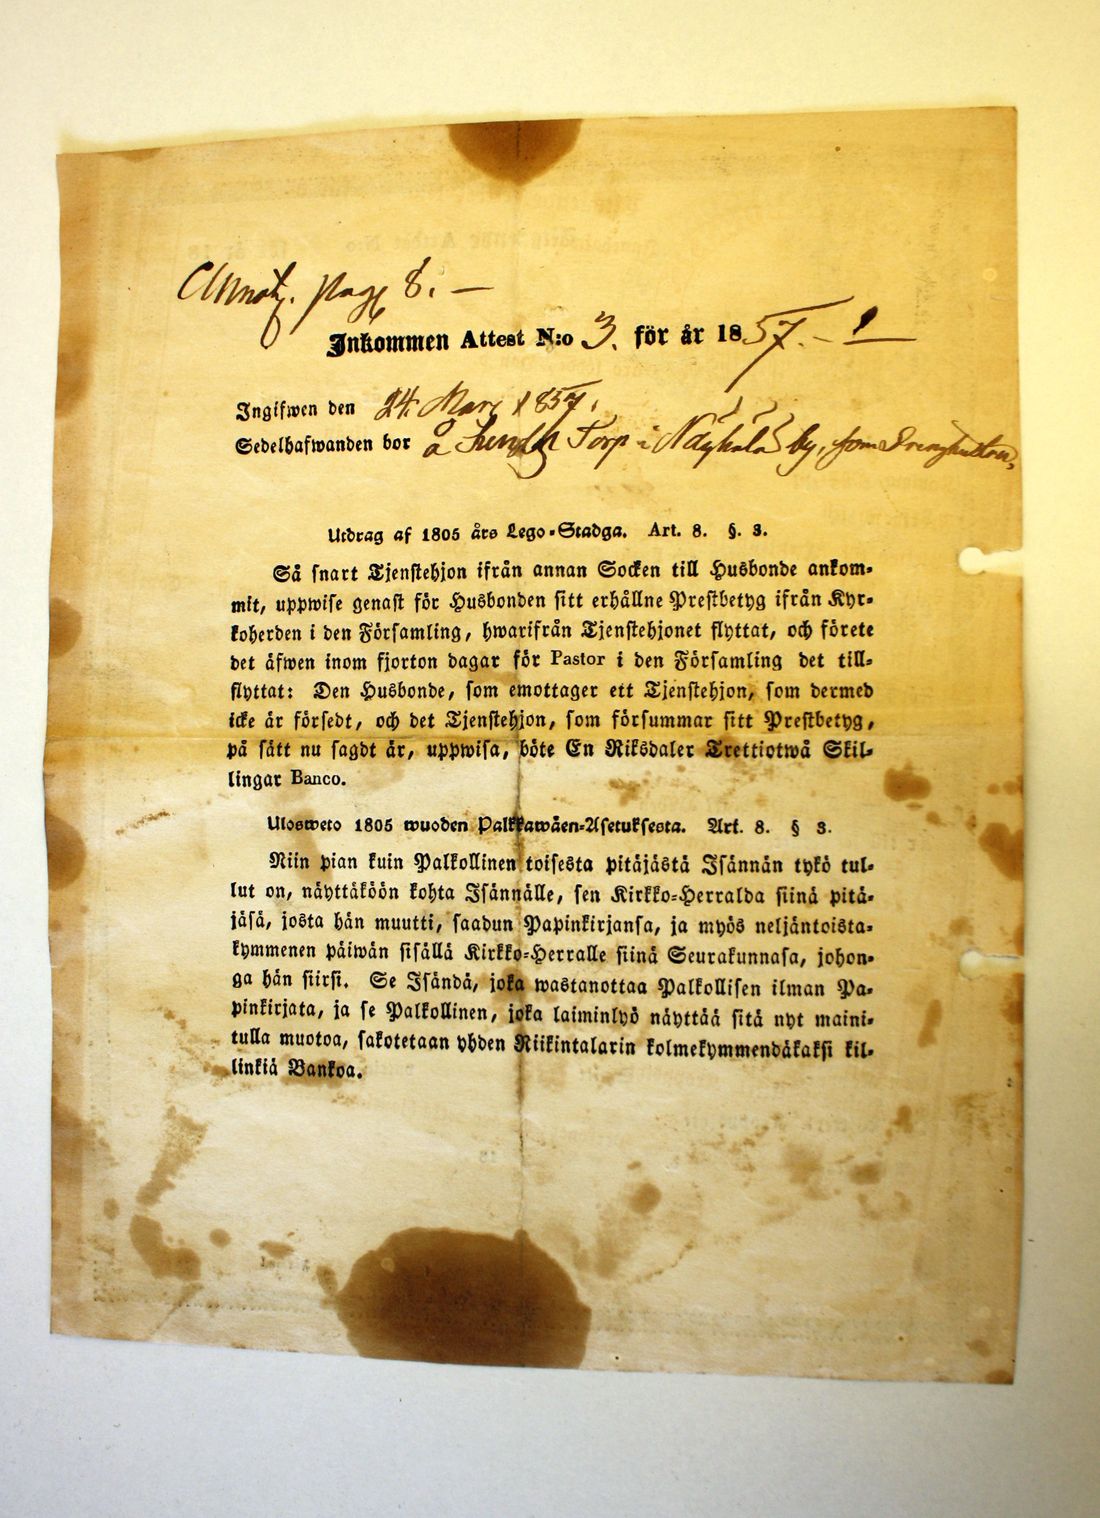 Annot. pag 8. —
Inkommen Attest N:o 3. för år 1857. —
Ingifwen den 24. Mars 1857.
Sedelhafwanden bor å Torp i by, som
Utdrag af 1805 års Lego-Stadga. Art. 8. §. 3.
Så snart Tjenstehjon ifrån annan Socken till Husbonde ankom-
mit, uppwise genast för Husbonden sitt erhållne Prestbetyg ifrån Kyr-
koherden i den Församling, hwarifrån Tjenstehjonet flyttat, och förete
det äfwen inom fjorton dagar för Pastor i den Församling det till-
flyttat: Den Husbonde, som emottager ett Tjenstehjon, som dermed
icke är försedt, och det Tjenstehjon, som försummar sitt Prestbetyg,
på sätt nu sagdt är, uppwisa, böte En Riksdaler Trettiotwå Skil-
lingar Banco.
Ulosweto 1805 wuoden Palkkawäen-Asetuksesta. Art. 8. § 3.
Niin pian kuin Palkollinen toisesta pitäjästä Isännän tykö tul-
lut on, näyttäköön kohta Isännälle, sen Kirkko-Herralda siinä pitä-
jäsä, josta hän muutti, saadun Papinkirjansa, ja myös neljäntoista-
kymmenen päiwän sisällä Kirkko-Herralle siinä Seurakunnasa, johon-
ga hän siirsi. Se Isändä, joka wastanottaa Palkollisen ilman Pa-
pinkirjata, ja se Palkollinen, joka laiminlyö näyttää sitä nyt maini-
tulla muotoa, sakotetaan yhden Riikintalarin kolmekymmendäkaksi kil-
linkiä Bankoa.